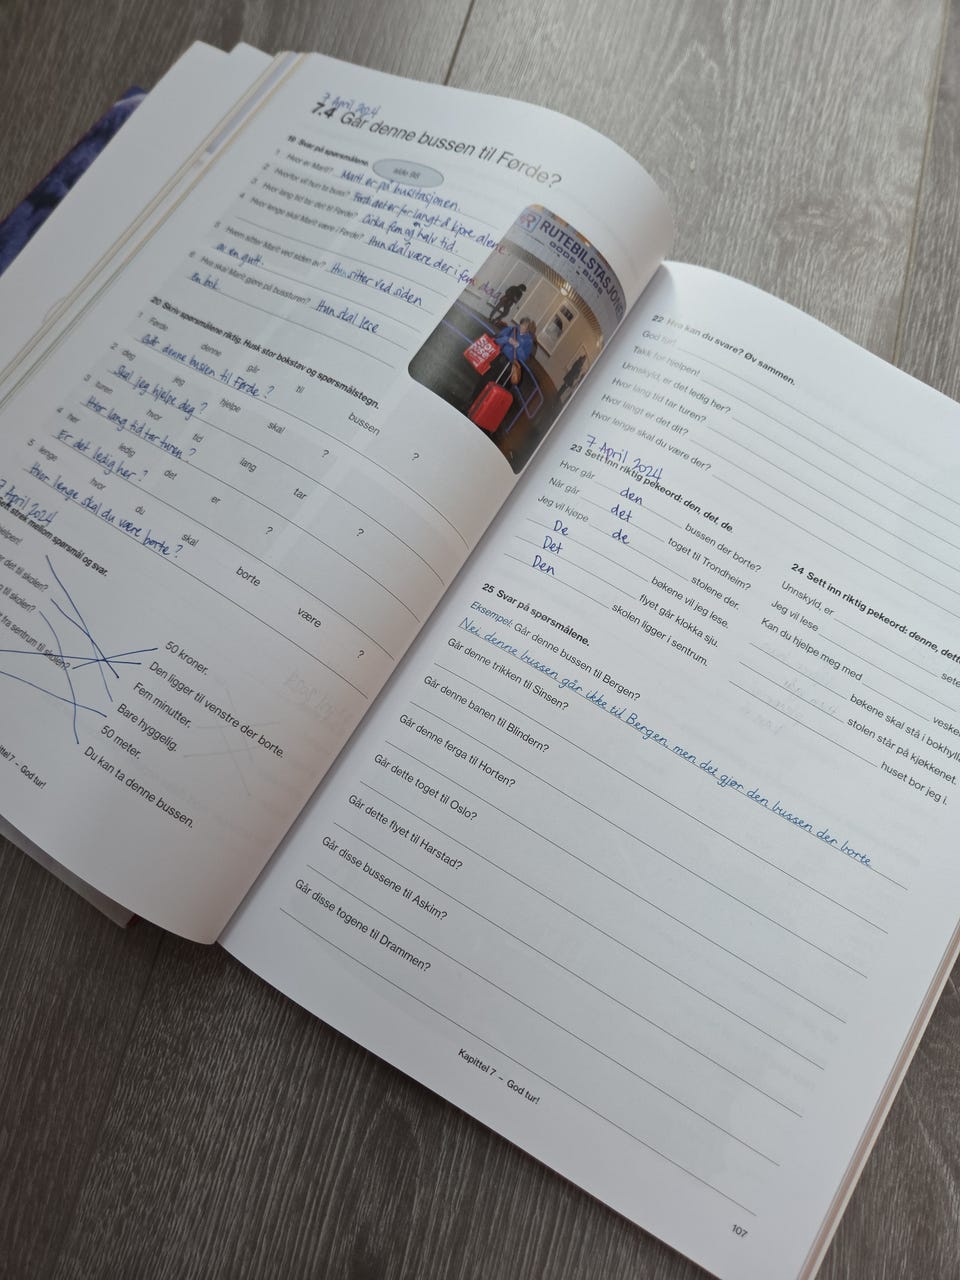 7 April 2024
7.4 Går denne bussen til Førde?
19 Svar på spørsmålene.
1 Hvor er Marit? Marit er på busstasjonen.
2 Hvorfor vil hun ta buss? Fordi det er for langt å kjøre alene.
3 Hvor lang tid tar det til Førde? Cirka fem og halv tid.
4 Hvor lenge skal Marit være i Førde? Hun skal være der i fem dag
5 Hvem sitter Marit ved siden av? Hun sitter ved siden
av en gutt.
6 Hva skal Marit gjøre på bussturen? Hun skal lese
en bok
RUTEBILSTASJON
GODS - BUSS
20 Skriv spørsmålene riktig. Husk stor bokstav og spørsmålstegn.
1 Førde denne går til bussen ?
Går denne bussen til Førde ?
2 deg jeg hjelpe skal ?
Skal jeg hjelpe deg ?
3 turen hvor tid lang tar ?
Hvor lang tid tar turen ?
4 her ledig det er ?
Er det ledig her ?
5 lenge hvor du skal borte være ?
Hvor lenge skal du være borte ?
7 April 2024
strek mellom spørsmål og svar.
hjelpen!
det til skolen?
til skolen?
fra sentrum til skolen?
50 kroner.
Den ligger til venstre der borte.
Fem minutter.
Bare hyggelig.
50 meter.
Du kan ta denne bussen.
7 – God tur!
22 Hva kan du svare? Øv sammen.
God tur!
Takk for hjelpen!
Unnskyld, er det ledig her?
Hvor lang tid tar turen?
Hvor langt er det dit?
Hvor lenge skal du være der?
7 April 2024
23 Sett inn riktig pekeord: den, det, de
Hvor går den bussen der borte?
Når går det toget til Trondheim?
Jeg vil kjøpe de stolene der.
De bøkene vil jeg lese.
Det flyet går klokka sju.
Den skolen ligger i sentrum.
24 Sett inn riktig pekeord: denne, dette
Unnskyld, er
Jeg vil lese
Kan du hjelpe meg med
bøkene skal stå i bokhylla
stolen står på kjøkkenet.
huset bor jeg i.
25 Svar på spørsmålene.
Eksempel: Går denne bussen til Bergen?
Nei, denne bussen går ikke til Bergen, men det gjør den bussen der borte
Går denne trikken til Sinsen?
Går denne banen til Blindern?
Går denne ferga til Horten?
Går dette toget til Oslo?
Går dette flyet til Harstad?
Går disse bussene til Askim?
Går disse togene til Drammen?
Kapittel 7 – God tur!
107